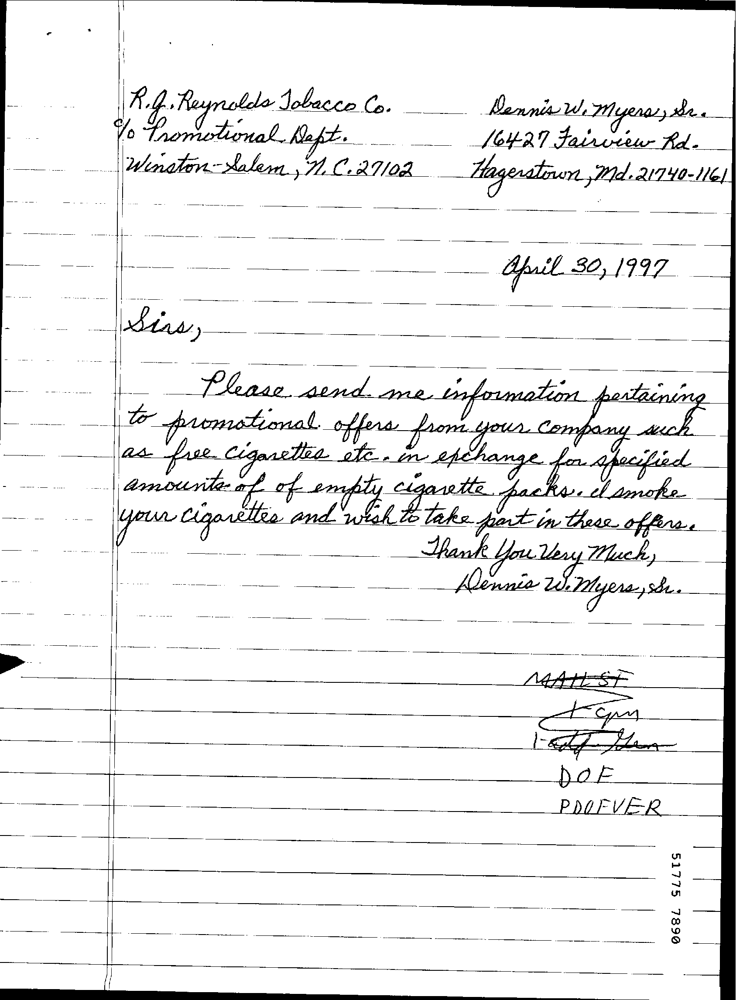 R.J. Reynolds Tobacco Co.
c/o Promotional Dept.
Winston-Salem, N.C. 27102
Dennis W. Myers, Sr.
16427 Fairview Rd.
Hagerstown, Md. 21740-1161
April 30, 1997
Sirs,
Please send me information pertaining
to promotional offers from your company such
as free cigarettes etc. in exchange for specified
amounts of of empty cigarette packs. I smoke
your cigarettes and wish to take part in these offers.
Thank You Very Much,
Dennis W. Myers, Sr.
MAILST
DOF
PDOFVER
51775 7890